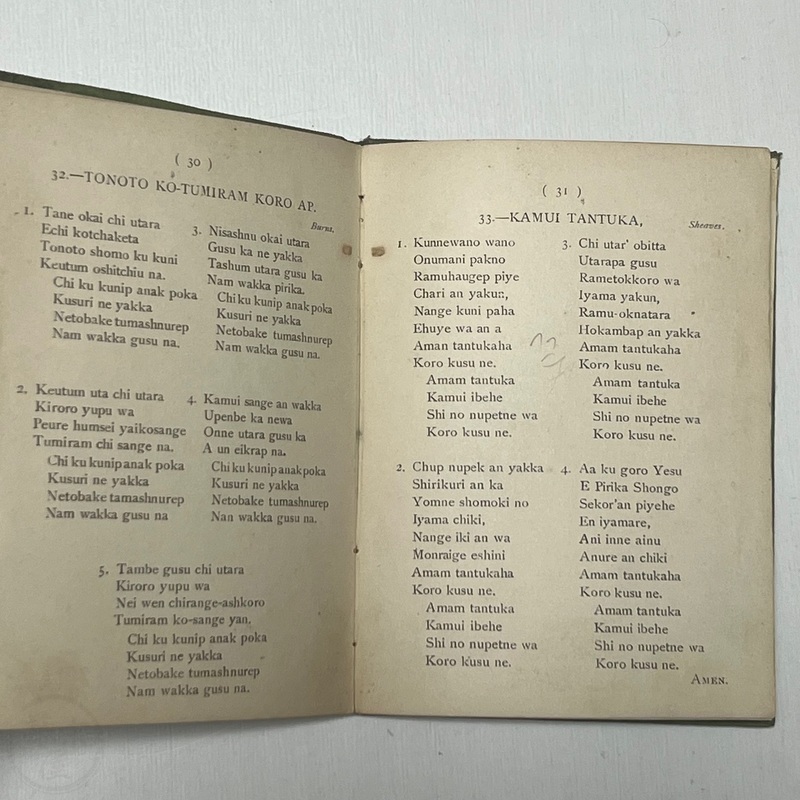 ( 30 )
32.—TONOTO KO-TUMIRAM KORO AP.
Burns.
1. Tane okai chi utara
Echi kotchaketa
Tonoto shomo ku kuni
Keutum oshitchiu na.
Chi ku kunip anak poka
Kusuri ne yakka
Netobake tumashnurep
Nam wakka gusu na.
2. Keutum uta chi utara
Kiroro yupu wa
Peure humsei yaikosange
Tumiram chi sange na.
Chi ku kunip anak poka
Kusuri ne yakka
Netobake tamashnurep
Nam wakka gusu na
3. Nisashnu okai utara
Gusu ka ne yakka
Tashum utara gusu ka
Nam wakka pirika.
Chi ku kunip anak poka
Kusuri ne yakka
Netobake tumashnurep
Nam wakka gusu na.
4. Kamui sange an wakka
Upenbe ka newa
Onne utara gusu ka
A un eikrap na.
Chi ku kunip anak poka
Kusuri ne yakka
Netobake tumashnurep
Nan wakka gusu na.
5. Tambe gusu chi utara
Kiroro yupu wa
Nei wen chirange-ashkoro
Tumiram ko-sange yan.
Chi ku kunip anak poka
Kusuri ne yakka
Netobake tumashnurep
Nam wakka gusu na.
( 31 )
33.—KAMUI TANTUKA,
Sheaves.
1. Kunnewano wano
Onumani pakno
Ramuhaugep piye
Chari an yakun,
Nange kuni paha
Ehuye wa an a
Aman tantukaha
Koro kusu ne.
Amam tantuka
Kamui ibehe
Shi no nupetne wa
Koro kusu ne.
2. Chup nupek an yakka
Shirikuri an ka
Yomne shomoki no
Iyama chiki,
Nange iki an wa
Monraige eshini
Amam tantukaha
Koro kusu ne.
Amam tantuka
Kamui ibehe
Shi no nupetne wa
Koro kusu ne.
3. Chi utar' obitta
Utarapa gusu
Rametokkoro wa
Iyama yakun,
Ramu-oknatara
Hokambap an yakka
Amam tantukaha
Koro kusu ne.
Amam tantuka
Kamui ibehe
Shi no nupetne wa
Koro kusu ne.
4. Aa ku goro Yesu
E Pirika Shongo
Sekor'an piyehe
En iyamare,
Ani inne ainu
Anure an chiki
Amam tantukaha
Koro kusu ne.
Amam tantuka
Kamui ibehe
Shi no nupetne wa
Koro kusu ne.
AMEN.